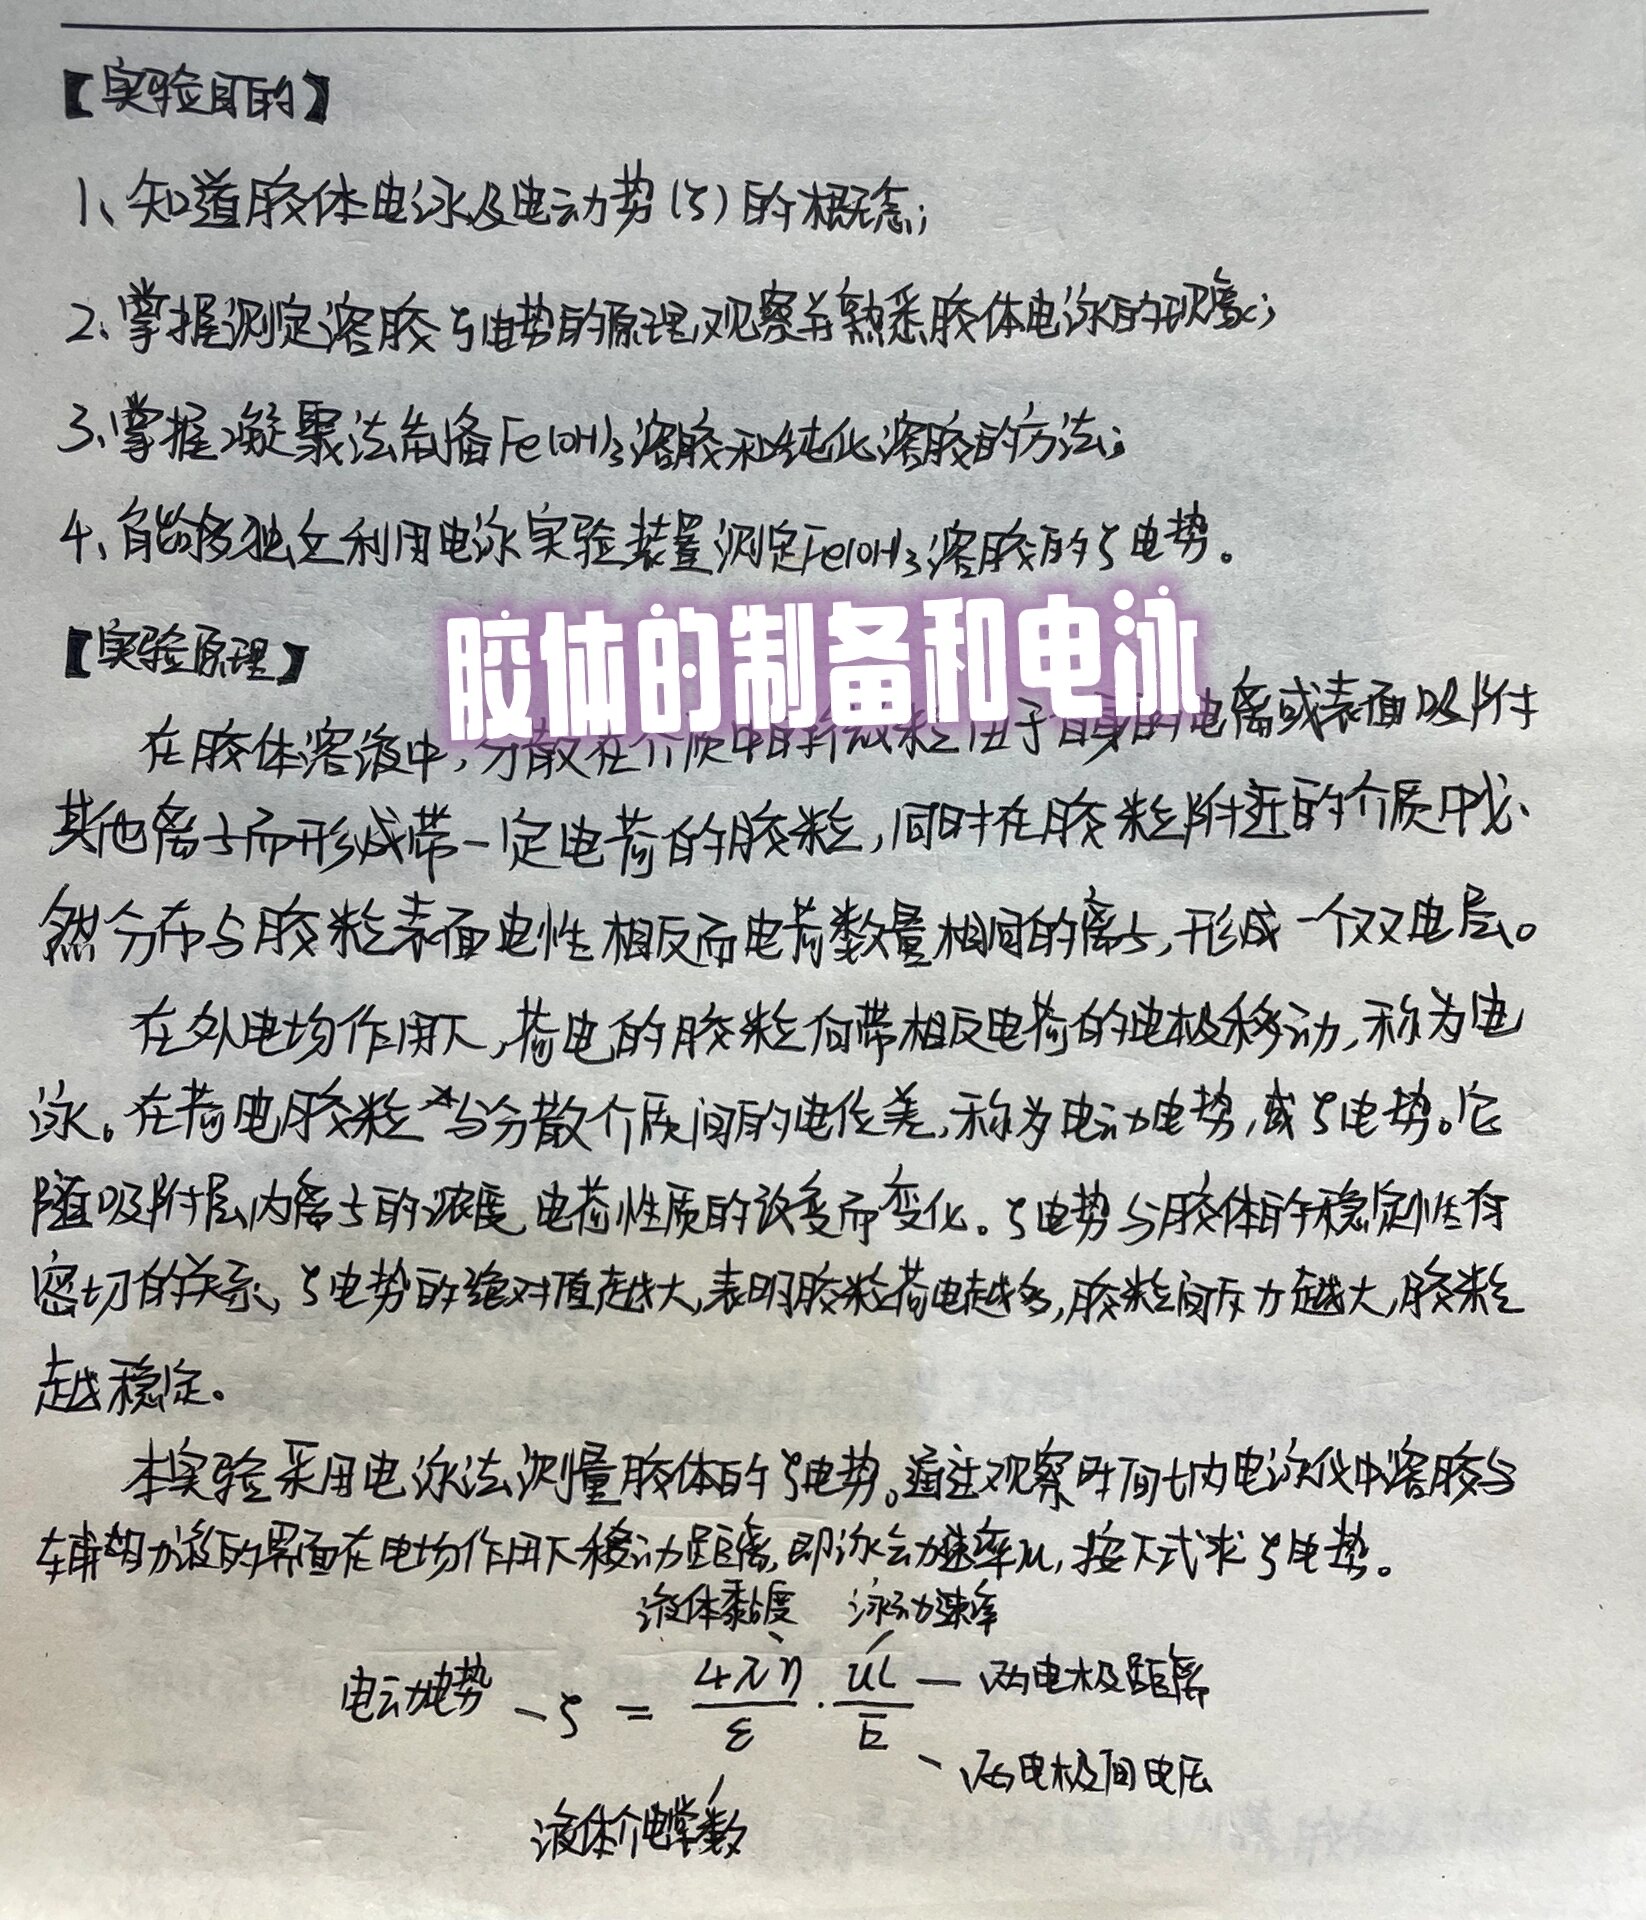 【实验目的】
1、知道胶体电泳及电动势(ζ)的概念;
2、掌握测定溶胶ζ电势的原理,观察并熟悉胶体电泳的现象;
3、掌握凝聚法制备Fe(OH)3溶胶和纯化溶胶的方法;
4、能够独立利用电泳实验装置测定Fe(OH)3溶胶的ζ电势。
胶体的制备和电泳
【实验原理】
在胶体溶液中,分散在介质中的微粒由于自身的电离或表面吸附
其他离子而形成带一定电荷的胶粒,同时在胶粒附近的介质中必
然分布与胶粒表面电性相反而电荷数量相同的离子,形成一个双电层。
在外电场作用下,荷电的胶粒向带相反电荷的电极移动,称为电
泳。在荷电胶粒与分散介质间的电位差,称为电动电势,或ζ电势。它
随吸附层内离子的浓度,电荷性质的改变而变化。ζ电势与胶体的稳定性有
密切的关系,ζ电势的绝对值越大,表明胶粒荷电越多,胶粒间斥力越大,胶粒
越稳定。
本实验采用电泳法测量胶体的ζ电势。通过观察时间t内电泳仪中溶胶与
辅助液的界面在电场作用下移动距离,即泳动速率u,按下式求ζ电势。
液体黏度 泳动速率
电动电势 - ζ = 4πη/ε · uL/E - 两电极距离
- 两电极间电压
液体介电常数